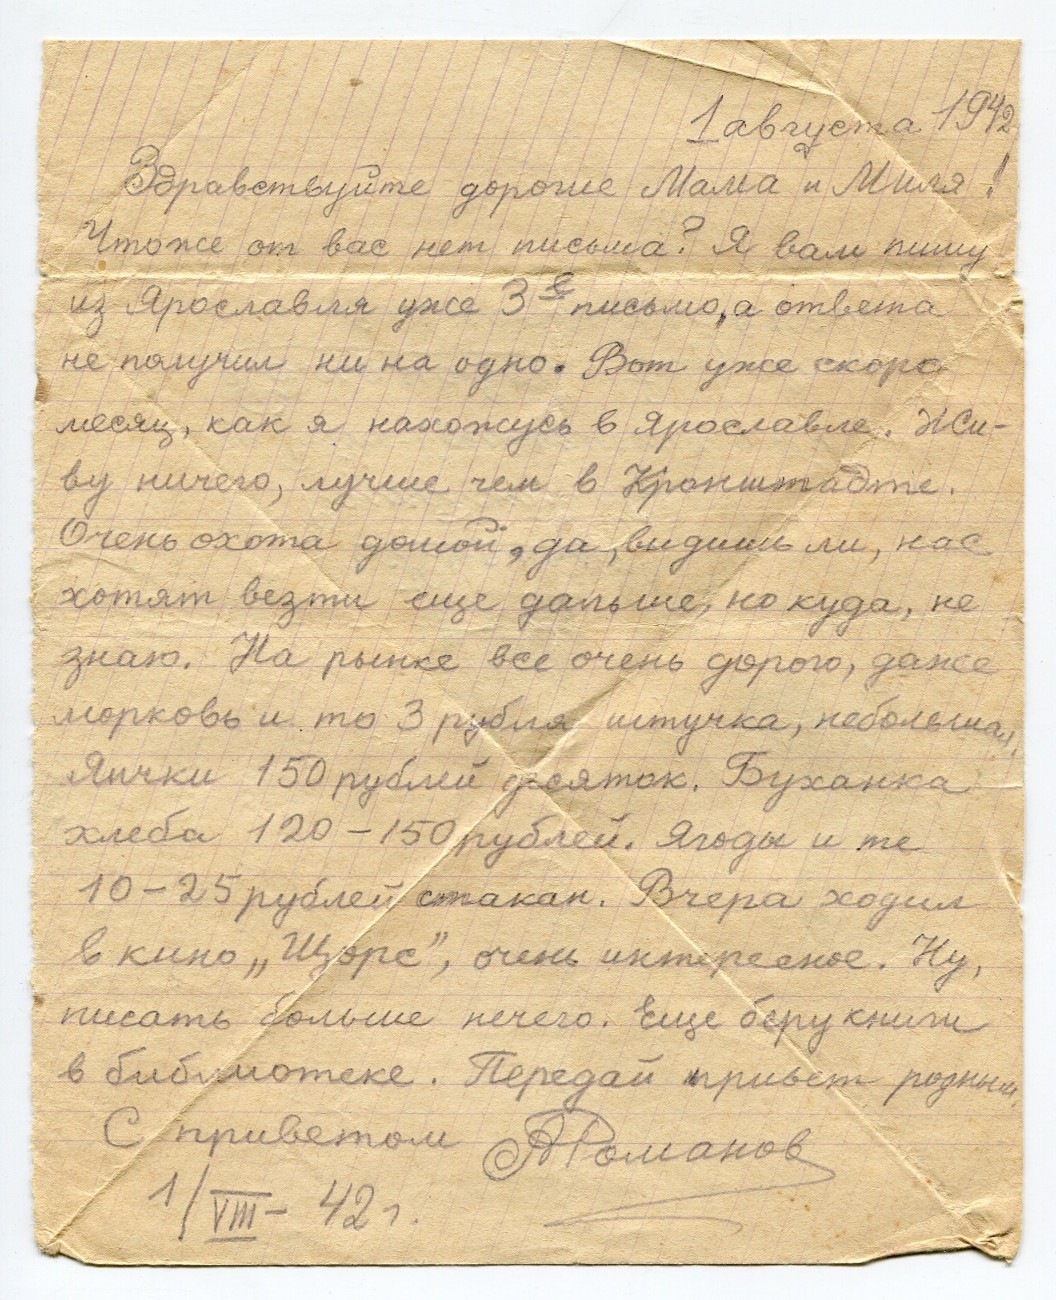 1 августа 1942
Здравствуйте дорогие Мама и Миля!
Чтоже от вас нет письма? Я вам пишу
из Ярославля уже 3е письмо, а ответа
не получил ни на одно. Вот уже скоро
месяц, как я нахожусь в Ярославле. Жи-
ву ничего, лучше чем в Кронштадте.
Очень охота домой, да, видишь ли, нас
хотят везти еще дальше, но куда, не
знаю. На рынке все очень дорого, даже
морковь и то 3 рубля штучка, небольшая.
Яички 150 рублей десяток. Буханка
хлеба 120-150 рублей. Ягоды и те
10-25 рублей стакан. Вчера ходил
в кино „Щорс”, очень интересное. Ну,
писать больше нечего. Еще беру книги
в библиотеке. Передай привет родным.
С приветом АРоманов
1/VIII- 42 г.